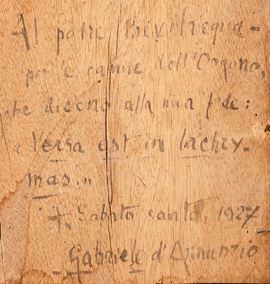 Al padre Bevilacqua =
per le canne dell'Organo,
te dicono alla mia fede:
«Versa est in lachry-
mas.»
+ Sabato santo. 1927
Gabriele d'Annunzio